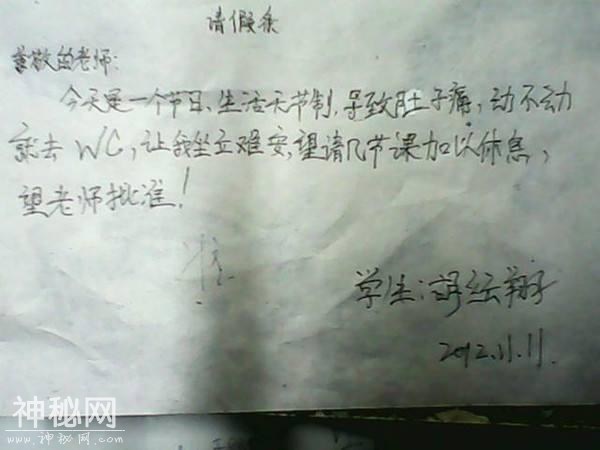 请假条
尊敬的老师:
今天是一个节日,生活无节制,导致肚子痛,动不动
就去WC,让我坐立难安,望请几节课加以休息,
望老师批准!
准
学生:
2012.11.11.
神秘网
www.神秘网.com